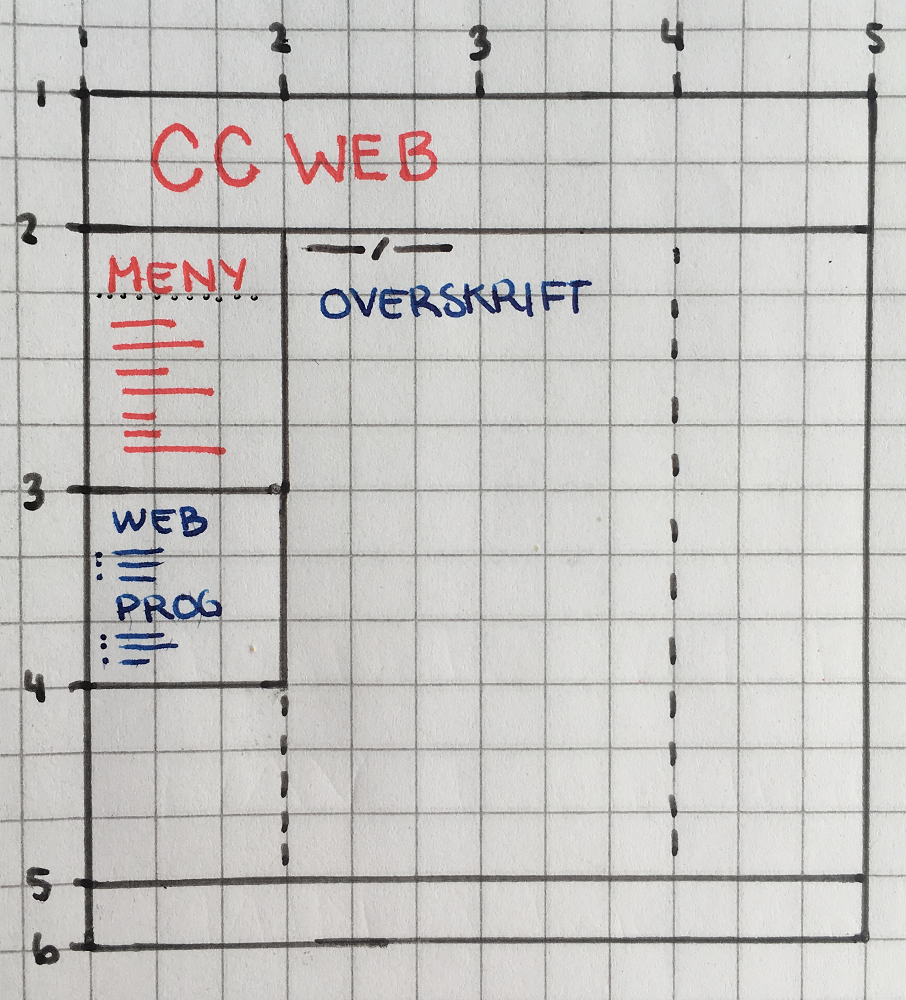 1 2 3 4 5
1
CC WEB
2
MENY
OVERSKRIFT
3
WEB
PROG
4
5
6